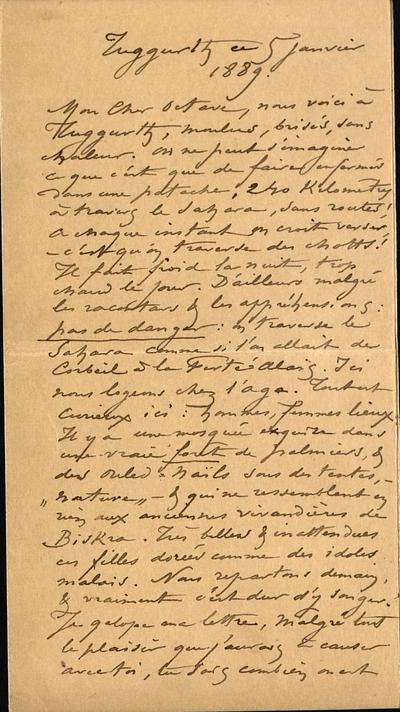 Tuggurth ce 5 janvier
1889.
Mon Cher Octave, nous voici à
Tuggurth, moulus, brisés, sans
chaleur. On ne peut s'imaginer
ce que c'est que de faire enfermés
dans une patache, 240 Kilomètres
à travers le Sahara, sans routes!
à chaque instant on croit verser,
– c'est qu'on traverse des chotts!
Il fait froid la nuit, trop
chaud le jour. D'ailleurs malgré
les racontars & les appréhensions :
pas de danger : on traverse le
Sahara comme si l'on allait de
Corbeil à la Ferté-Alais. Ici
nous logeons chez l'aga. Tout est
curieux ici : hommes, femmes lieux.
Il y a une mosquée exquise dans
une vraie forêt de palmiers, &
des Ouled-Naïls sous des tentes, –
„nature„ – & qui ne ressemblent en
rien aux anciennes vivandières de
Biskra. Très belles & inattendues
ces filles dorées comme des idoles
malais. Nous repartons demain,
& vraiment c'est dur d'y songer.
Je galope ma lettre, malgré tout
le plaisir que j'aurais à causer
avec toi, tu sais combien on est